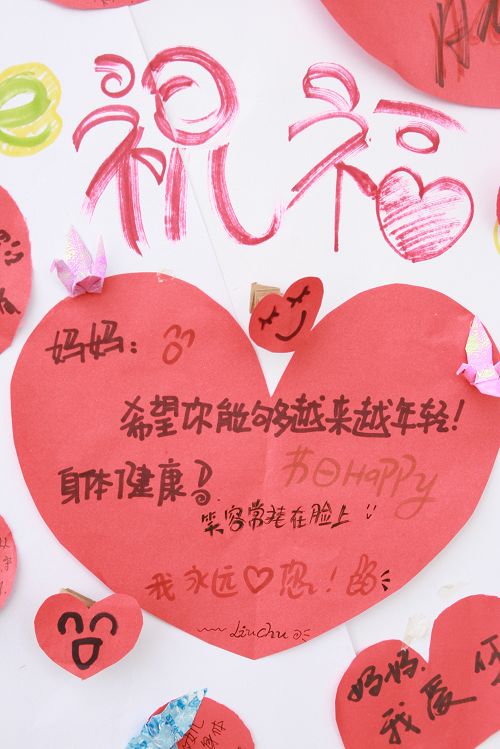 Ha
祝福
妈妈:
希望你能够越来越年轻!
身体健康!
节日HaPPy
笑容常挂在脸上
我永远♡您!
Liuchu
妈妈.
我爱